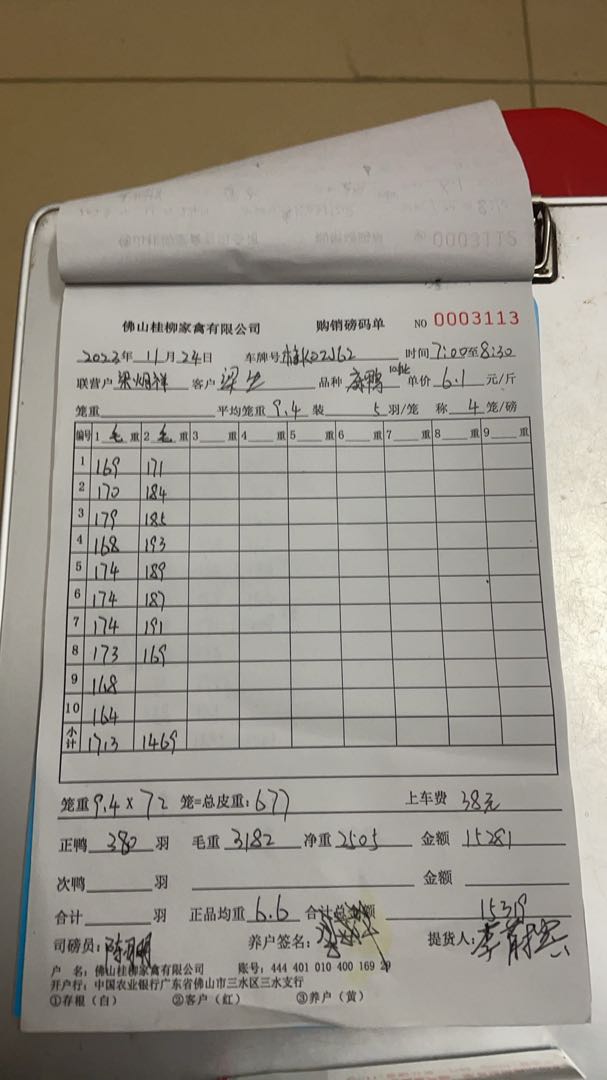 佛山桂柳家禽有限公司 购销磅码单 NO 0003113
2023年 11月24日 车牌号 时间7:00至8:30
联营户 梁炳祥 客户 梁生 品种 麻鸭 单价 6.1 元/斤
笼重 平均笼重 9.4 装 5 羽/笼 称 4 笼/磅
编号 1 毛 重 2 毛 重 3 重 4 重 5 重 6 重 7 重 8 重 9 重
1 169 171
2 170 184
3 179 185
4 168 193
5 174 189
6 174 187
7 174 191
8 173 169
9 168
10 164
小计 1713 1469
笼重 9.4 × 72 笼=总皮重: 677 上车费 38元
正鸭 380 羽 毛重 3182 净重 2505 金额 15281
次鸭 羽 金额
合计 羽 正品均重 6.6 合计总金额 15319
司磅员: 养户签名: 提货人:
户 名: 佛山桂柳家禽有限公司 账号: 444 401 010 400 169 29
开户行: 中国农业银行广东省佛山市三水区三水支行
①存根（白） ②客户（红） ③养户（黄）